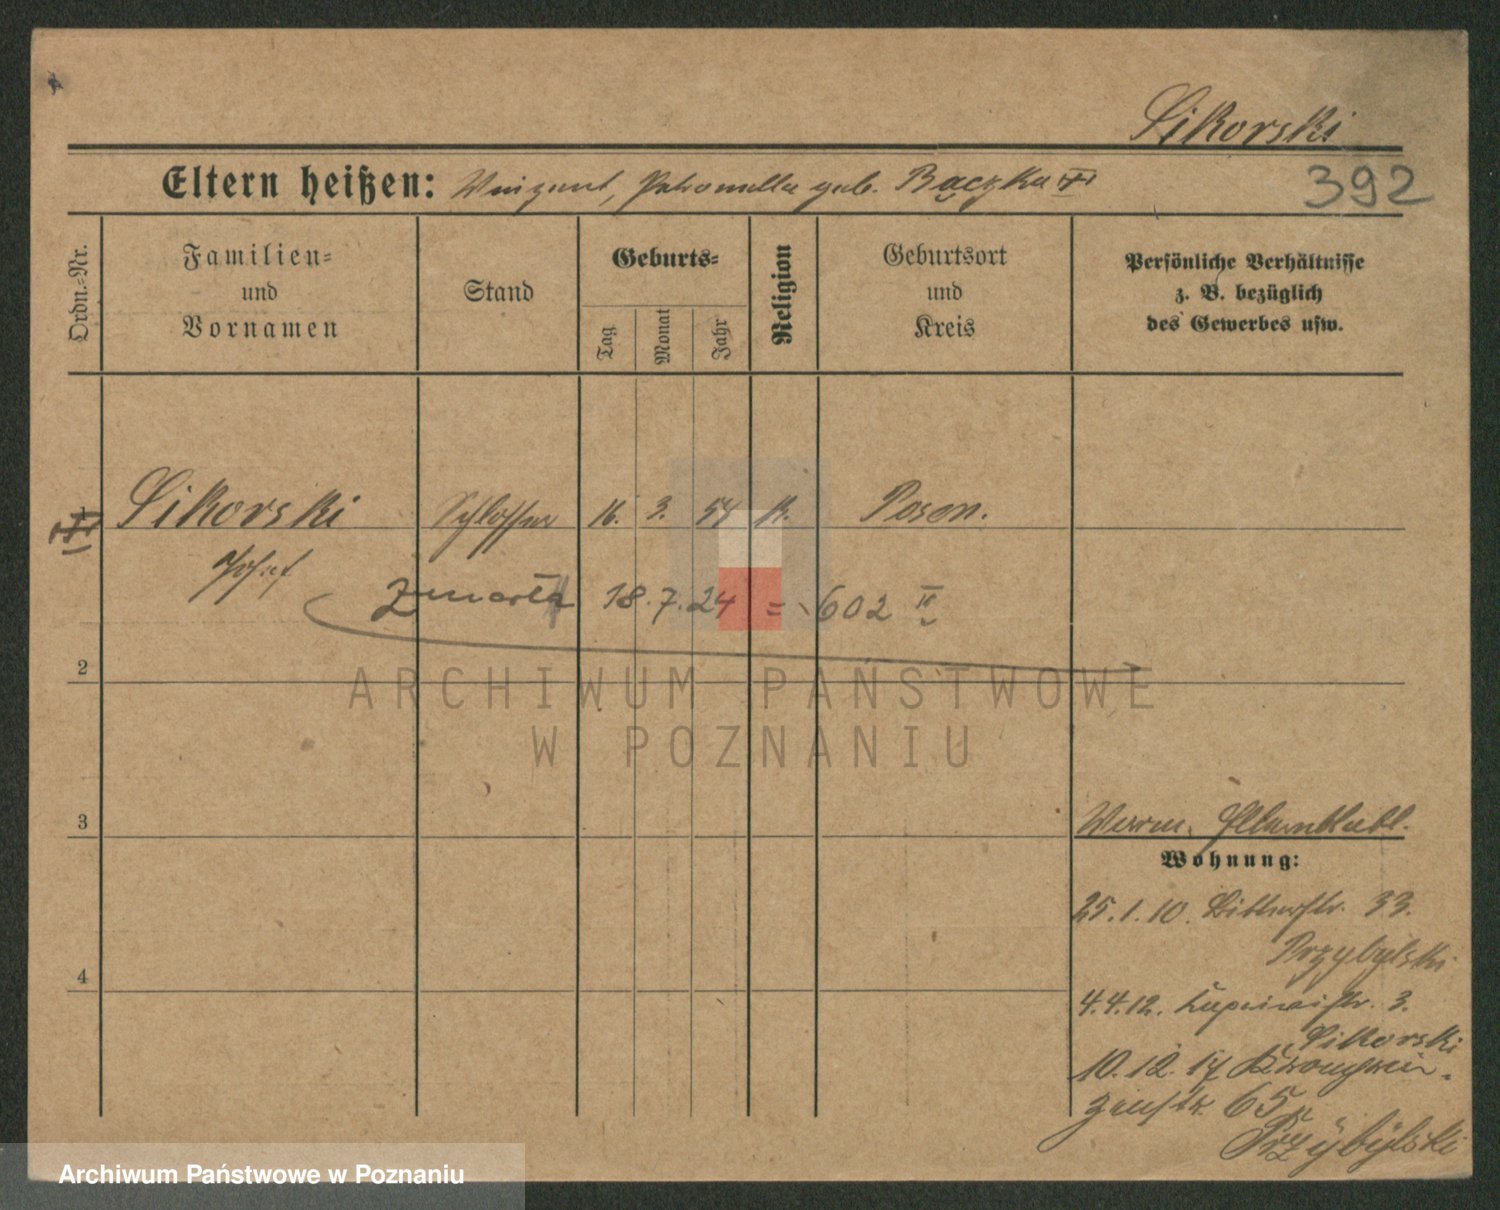 Sikorski
Eltern heißen: Vinzent, Petronella geb. Bączka
392
Ordn.-Nr.
Familien-
und
Vornamen
Stand
Geburts-
Tag
Monat
Jahr
Religion
Geburtsort
und
Kreis
Persönliche Verhältnisse
z. B. bezüglich
des Gewerbes usw.
Sikorski Schlosser 16. 3. 54 k. Posen.
Josef
Zmarła 18.7.24 = 602 II
2
ARCHIWUM PAŃSTWOWE
W POZNANIU
3
Wohnung:
25.1.10. Bitterstr. 33.
Przybylski
4
4.4.12. 3.
Sikorski
10.12.17 Kronprin-
zenstr. 65
Przybylski
Archiwum Państwowe w Poznaniu